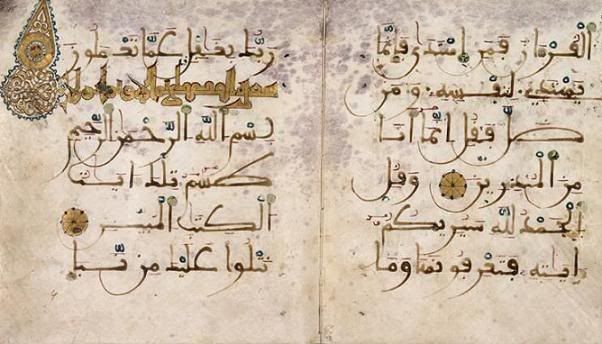 القران فمن اهتدى فإنما
يهتدي لنفسه ومن
ضل فقل إنما أنا
من المنذرين وقل
الحمد لله سيريكم
ايته فتعرفونها وما
ربك بغفل عما تعملون
سورة القصص
بسم الله الرحمن الرحيم
طسم تلك ايت
الكتب المبين
نتلوا عليك من نبإ